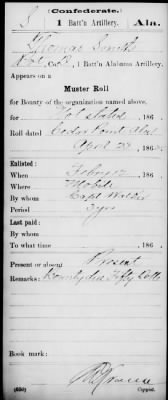 (Confederate.)
S 1 Batt'n Artillery. Ala.
Thomas Smith
Co. 1 Batt'n Alabama Artillery.
Appears on a
Muster Roll
for Bounty of the organization named above,
for Not stated, 186 .
Roll dated Cedar Point Ala
April 28, 186
Enlisted:
When Feby 12, 186 .
Where Mobile
By whom Capt
Period 3 yrs
Last paid:
By whom
To what time , 186 .
Present or absent Present
Remarks: Bounty due Fifty Dolls
Book mark:
(656) Copyist.